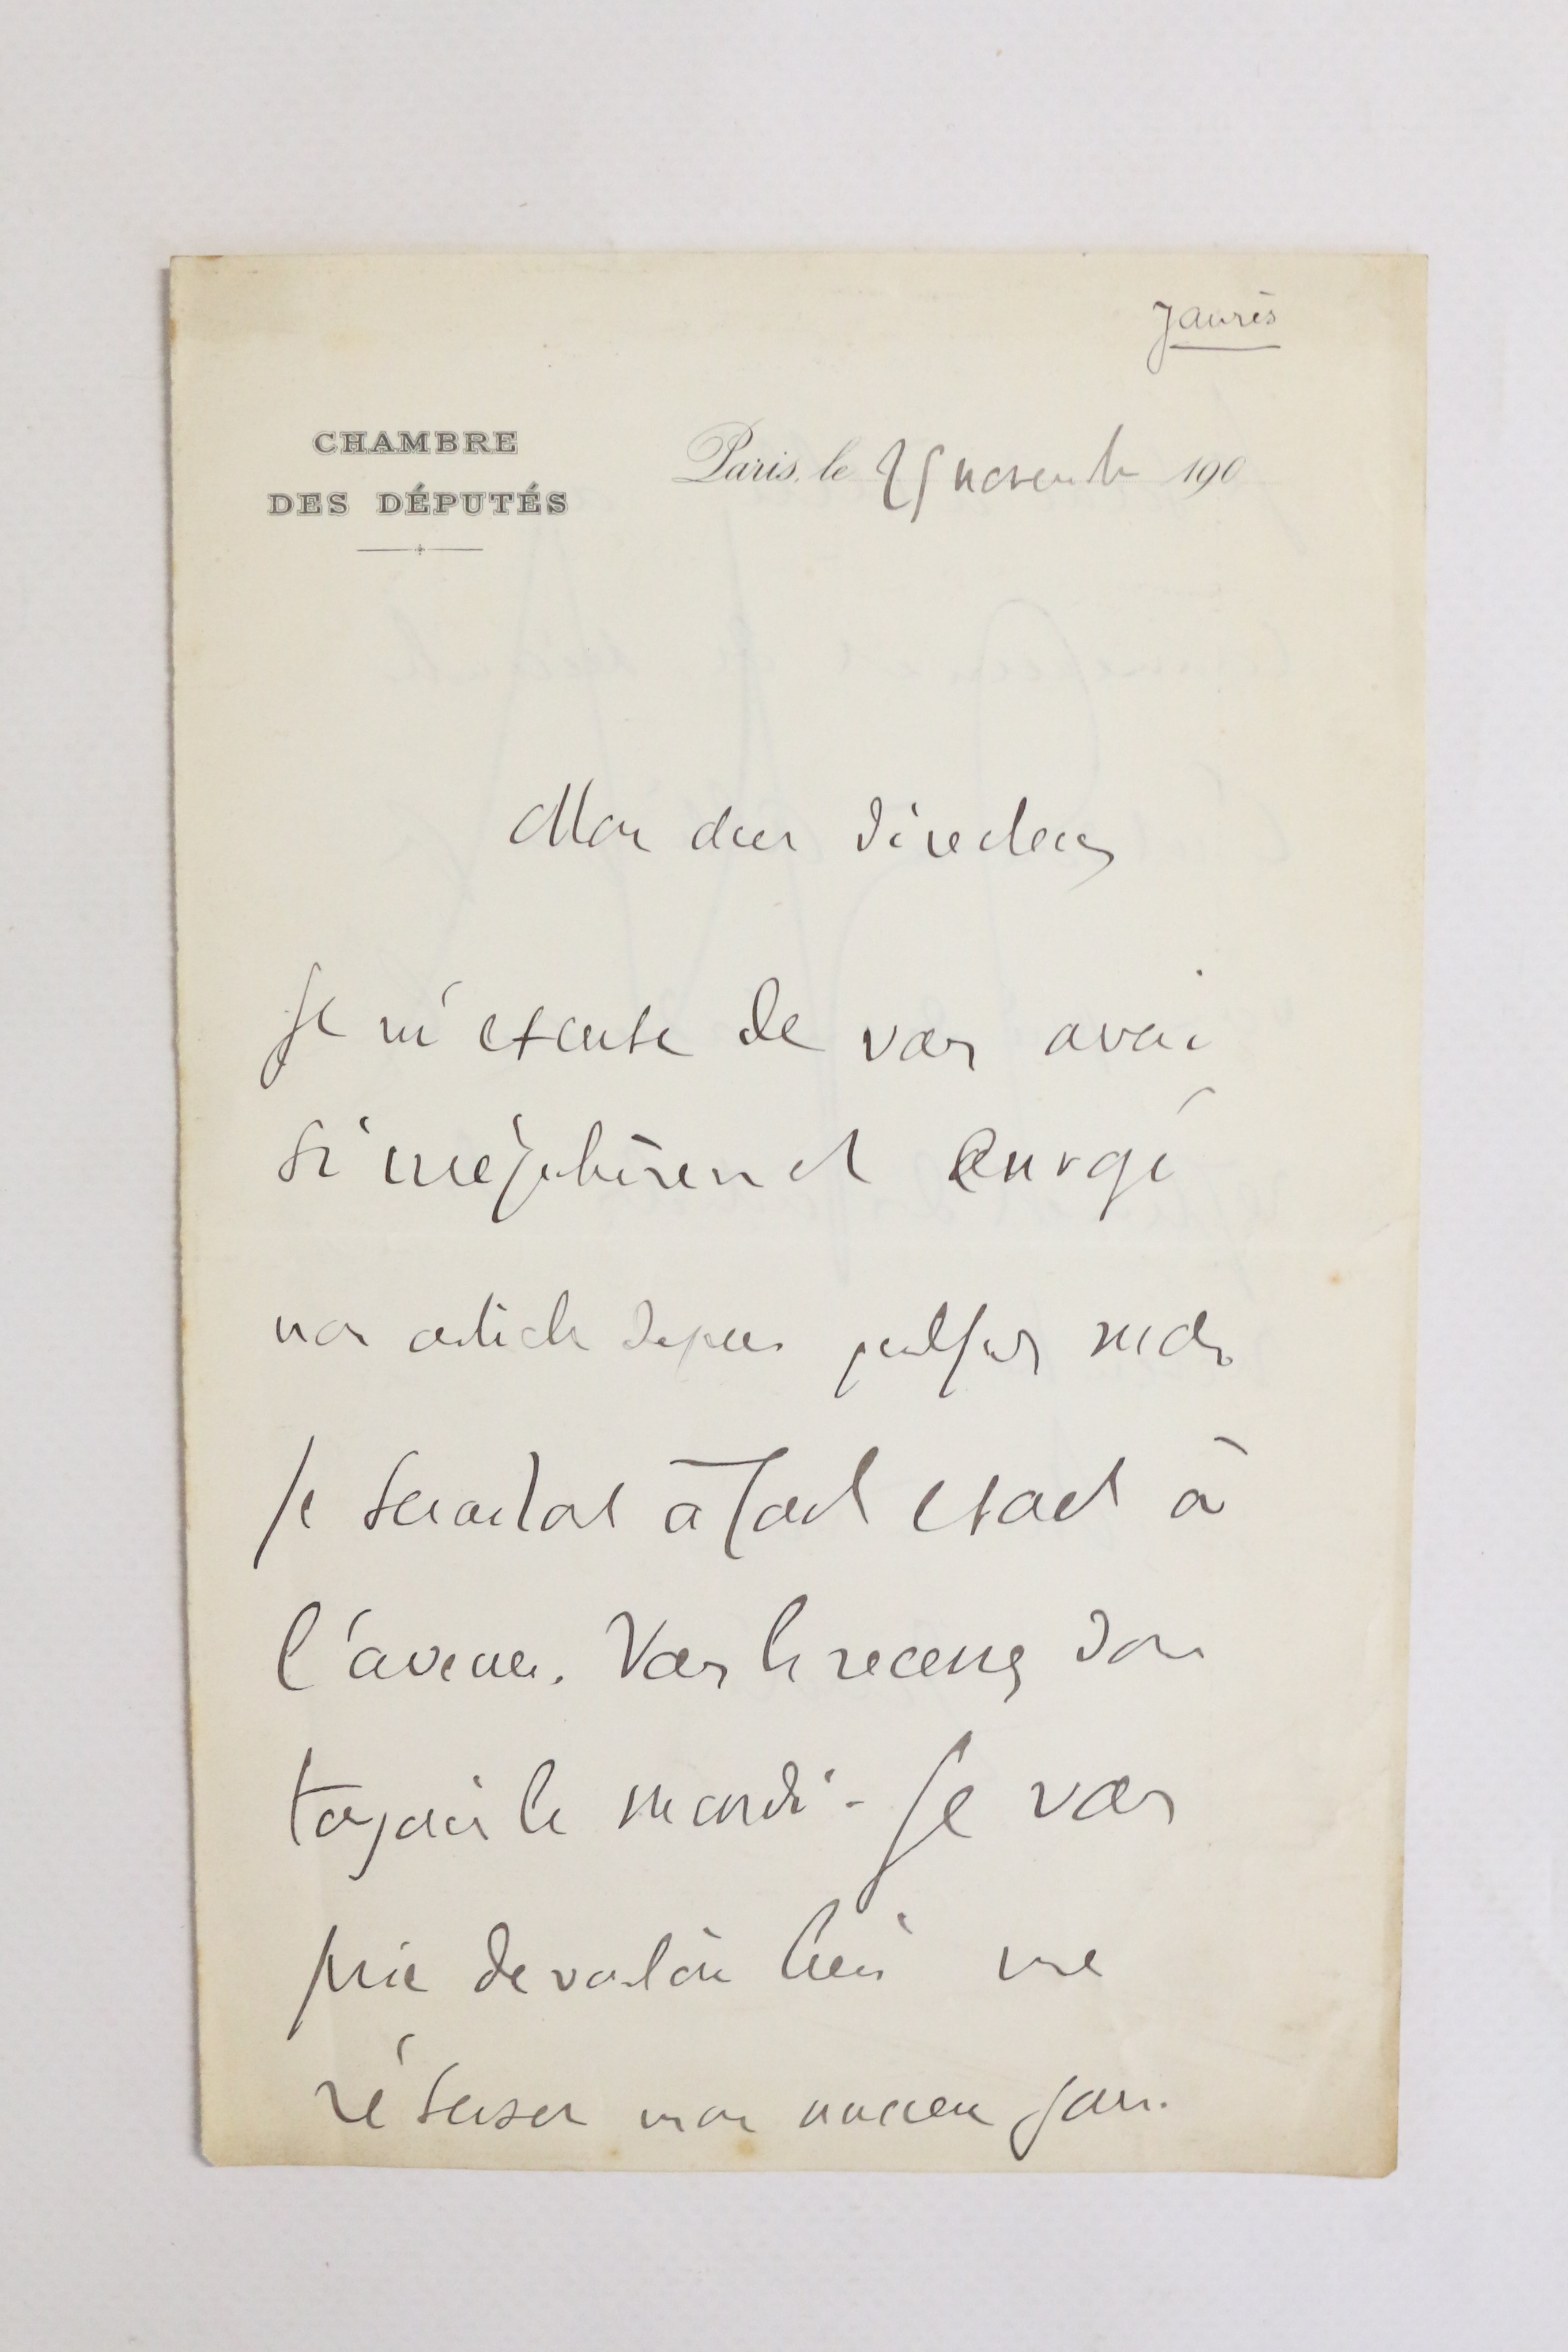 Jaurès
CHAMBRE
DES DÉPUTÉS
Paris, le 25 novembre 190
Mon cher directeur
Je m'excuse de vous avoir
si irrégulièrement envoyé
mon article depuis quelques mois.
Je serai tout à fait exact à
l'avenir. Vous le recevrez donc
toujours le mardi - Je vous
prie de vouloir bien me
réserver mon ancien jour.